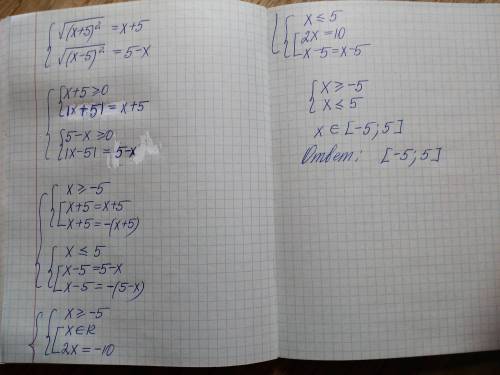 √(x+5)² = x+5
√(x-5)² = 5-x
x+5 ≥ 0
|x+5| = x+5
5-x ≥ 0
|x-5| = 5-x
x ≥ -5
x+5 = x+5
x+5 = -(x+5)
x ≤ 5
x-5 = 5-x
x-5 = -(5-x)
x ≥ -5
x∈R
2x = -10
x ≤ 5
2x = 10
x-5 = x-5
x ≥ -5
x ≤ 5
x ∈ [-5; 5]
Ответ: [-5; 5]